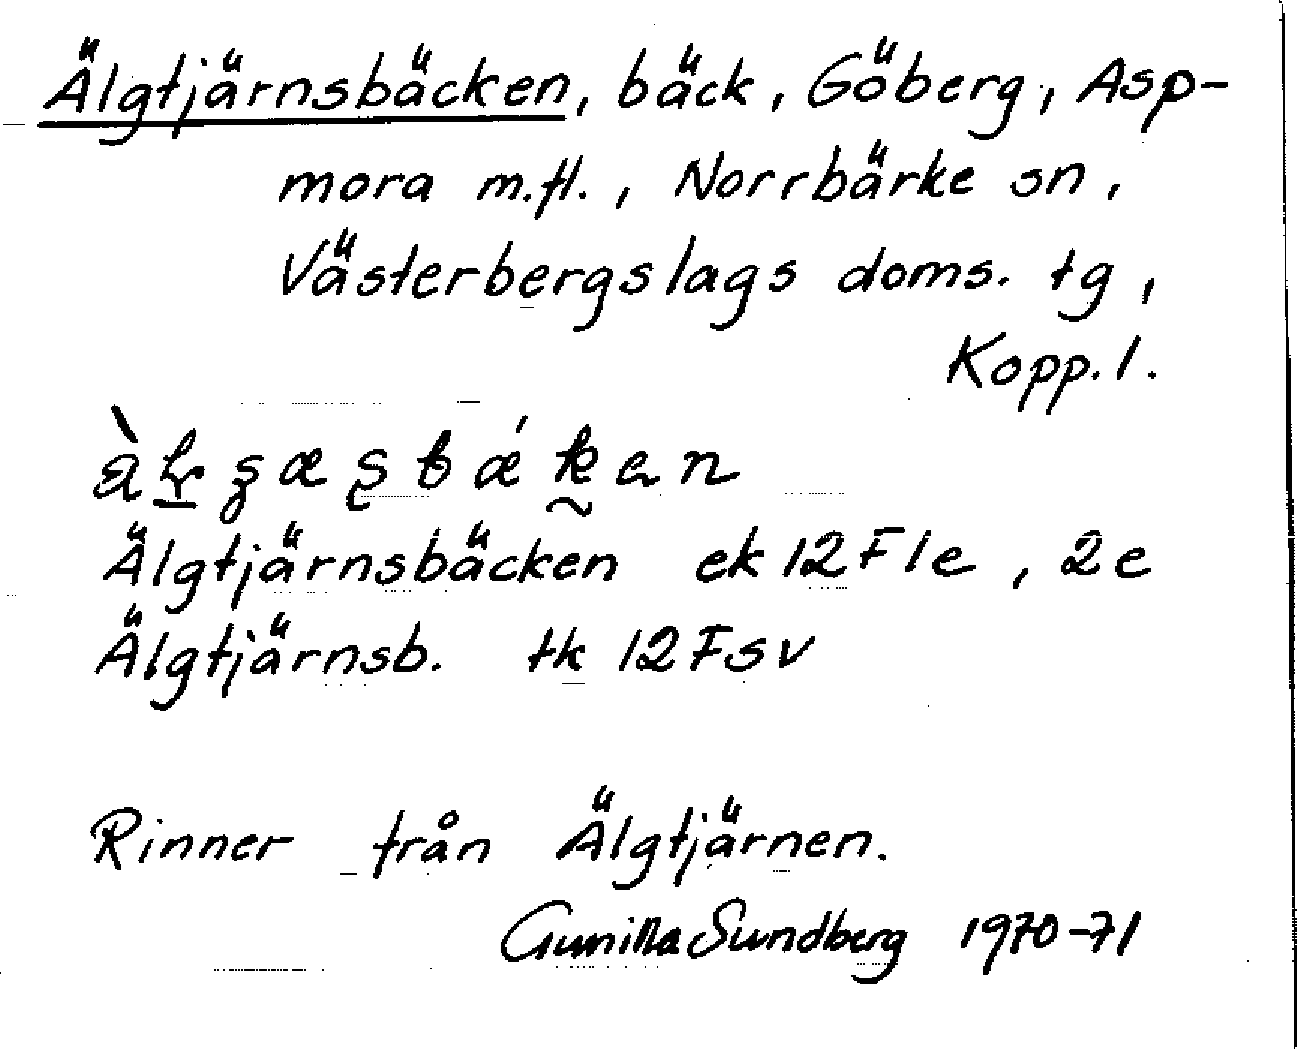 Älgtjärnsbäcken, bäck, Göberg, Asp-
mora m.fl., Norrbärke sn,
Västerbergslags doms. tg,
Kopp.l.
Älgtjärnsbäcken ek 12F1e, 2e
Älgtjärnsb. tk 12Fsv
Rinner från Älgtjärnen.
Gunilla Sundberg 1970-71